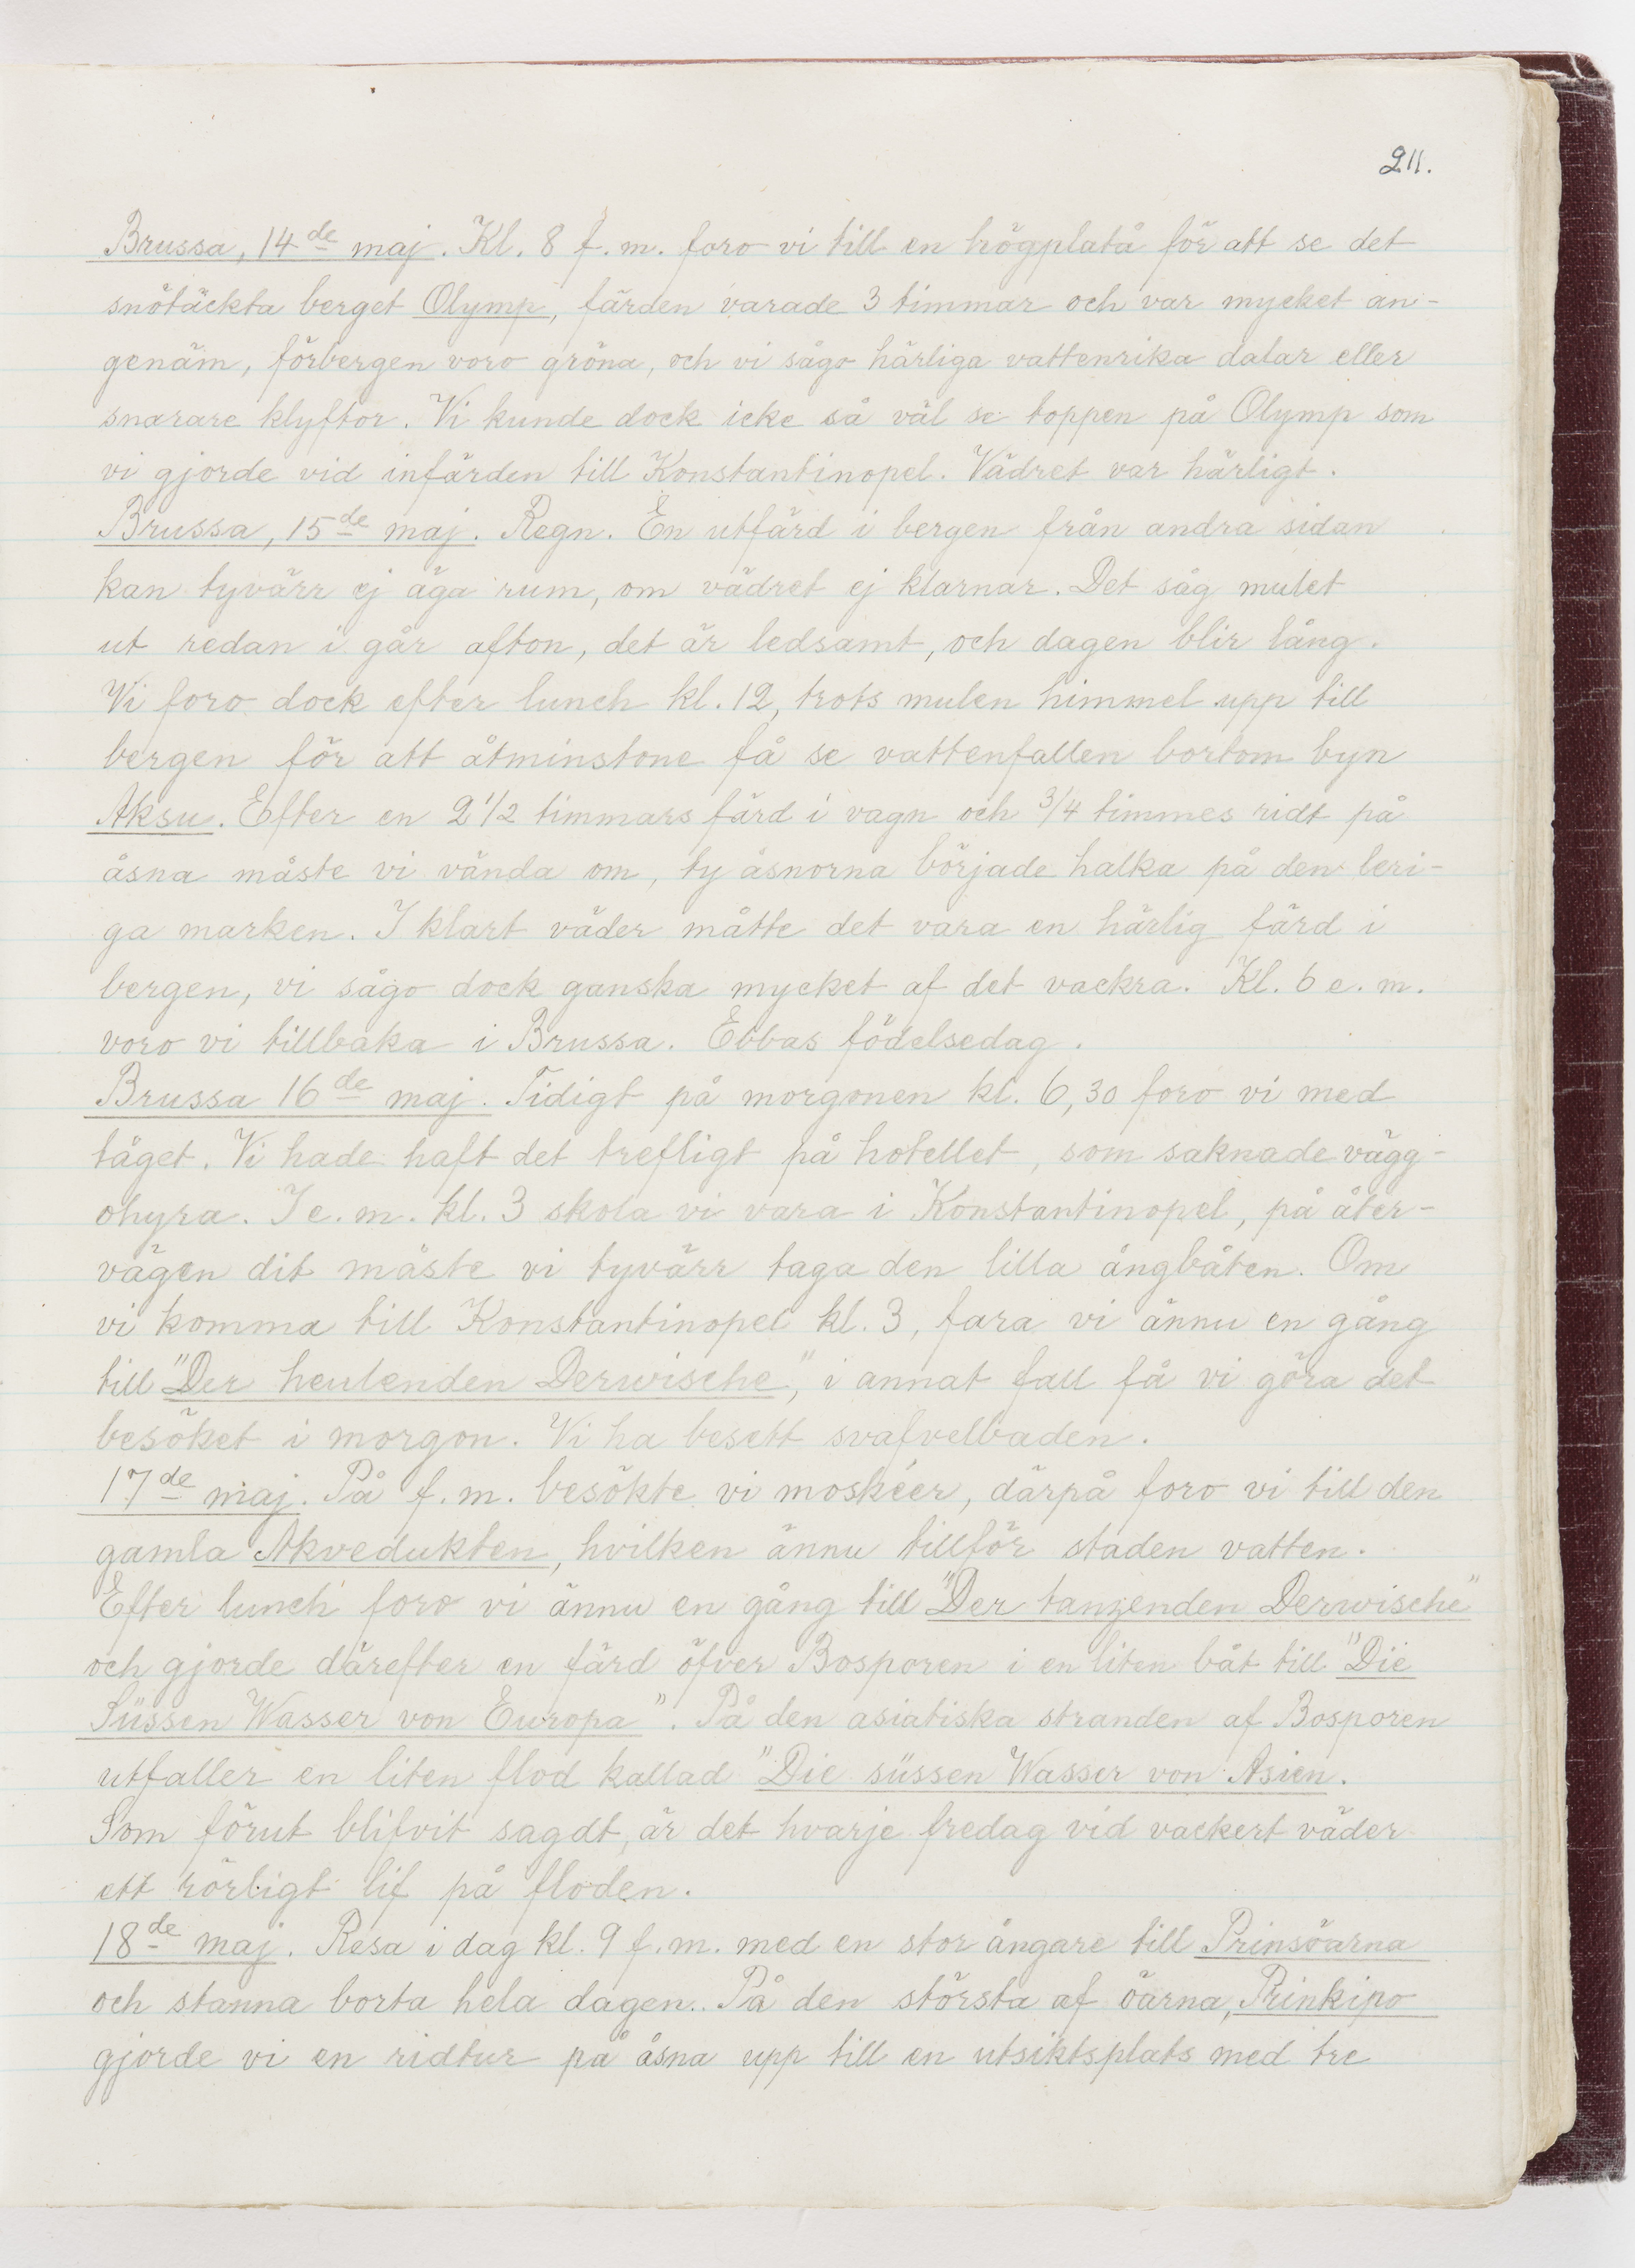 211.
Brussa, 14de maj. Kl. 8 f.m. foro vi till en högplatå för att se det
snötäckta berget Olymp, färden varade 3 timmar och var mycket an-
genäm, förbergen voro gröna, och vi sågo härliga vattenrika dalar eller
snarare klyftor. Vi kunde dock icke så väl se toppen på Olymp som
vi gjorde vid infärden till Konstantinopel. Vädret var härligt.
Brussa, 15de maj. Regn. En utfärd i bergen från andra sidan
kan tyvärr ej äga rum, om vädret ej klarnar. Det såg mulet
ut redan i går afton, det är ledsamt, och dagen blir lång.
Vi foro dock efter lunch kl. 12, trots mulen himmel upp till
bergen för att åtminstone få se vattenfallen bortom byn
Aksu. Efter en 2 1/2 timmars färd i vagn och 3/4 timmes ridt på
åsna måste vi vända om, ty åsnorna började halka på den leri-
ga marken. I klart väder måtte det vara en härlig färd i
bergen, vi sågo dock ganska mycket af det vackra. Kl. 6 e.m.
voro vi tillbaka i Brussa. Ebbas födelsedag.
Brussa 16de maj. Tidigt på morgonen kl. 6,30 foro vi med
tåget. Vi hade haft det trefligt på hotellet, som saknade vägg-
ohyra. I e.m. kl. 3 skola vi vara i Konstantinopel, på åter-
vägen dit måste vi tyvärr taga den lilla ångbåten. Om
vi komma till Konstantinopel kl. 3, fara vi ännu en gång
till "Der heulenden Derwische", i annat fall få vi göra det
besöket i morgon. Vi ha besett svafvelbaden.
17de maj. På f.m. besökte vi moskéer, därpå foro vi till den
gamla Akvedukten, hvilken ännu tillför staden vatten.
Efter lunch foro vi ännu en gång till "Der tanzenden Derwische"
och gjorde därefter en färd öfver Bosporen i en liten båt till "Die
Süssen Wasser von Europa". På den asiatiska stranden af Bosporen
utfaller en liten flod kallad "Die süssen Wasser von Asien.
Som förut blifvit sagdt, är det hvarje fredag vid vackert väder
ett rörligt lif på floden.
18de maj. Resa i dag kl. 9 f.m. med en stor ångare till Prinsöarna
och stanna borta hela dagen. På den största af öarna, Prinkipo
gjorde vi en ridtur på åsna upp till en utsiktsplats med tre